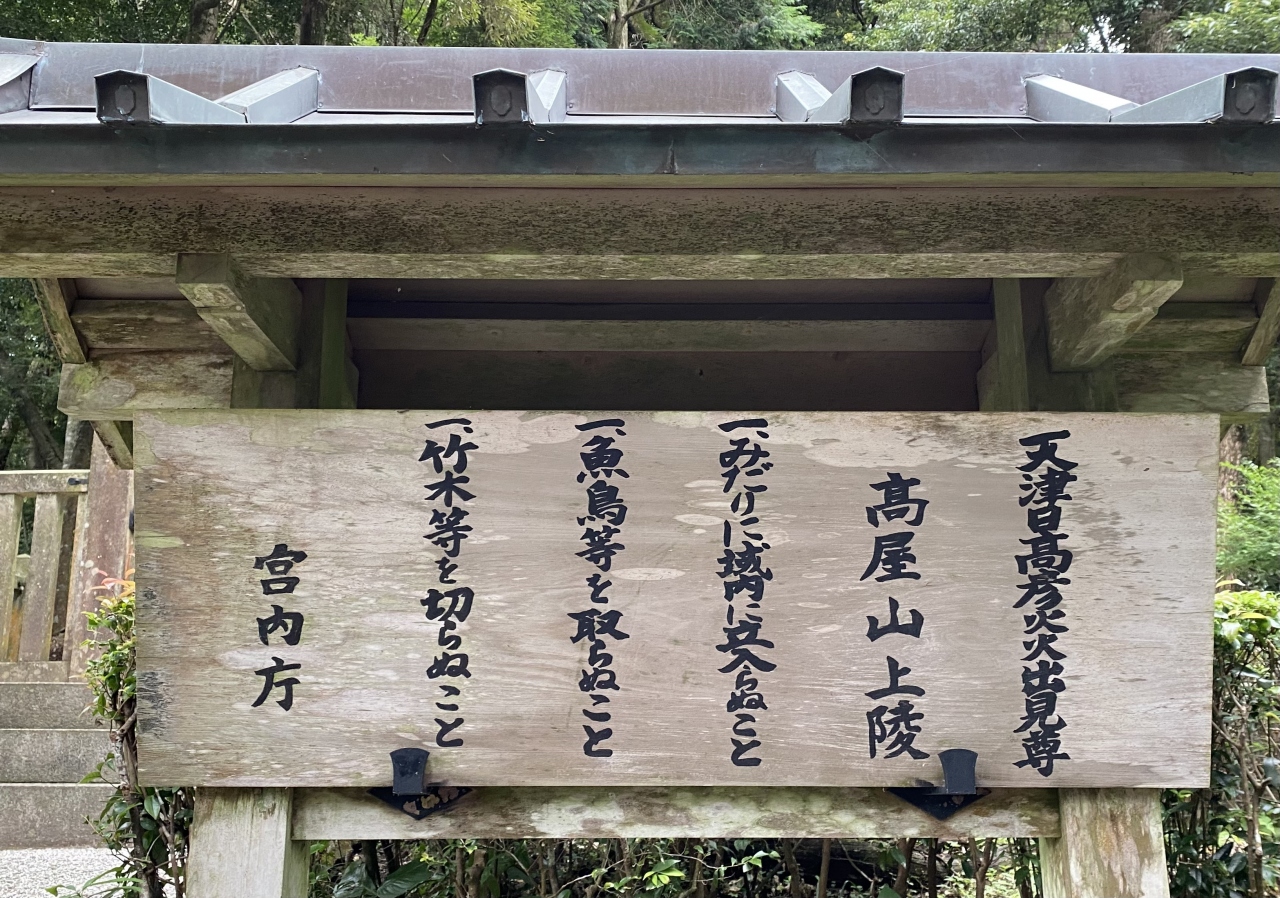 天津日高彦火火出見尊
高屋山上陵
一、みだりに域内に立入らぬこと
一、魚鳥等を取らぬこと
一、竹木等を切らぬこと
宮内庁